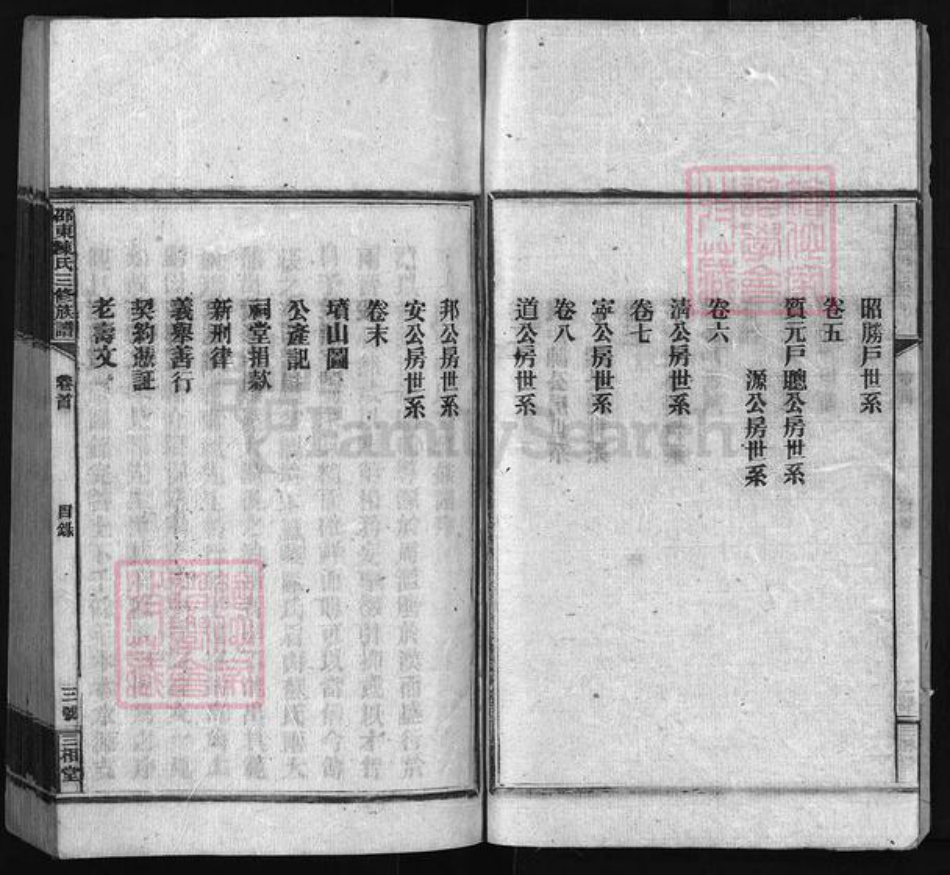 昭勝戶世系
卷五
賢元戶聰公房世系
源公房世系
卷六
清公房世系
卷七
寧公房世系
卷八
道公房世系
邦公房世系
安公房世系
卷末
墳山圖
公產記
祠堂捐欵
新刑律
義舉善行
契約憑証
老壽文
邵東陳氏三修族譜
卷首
目錄
三號
三相堂
FamilySearch